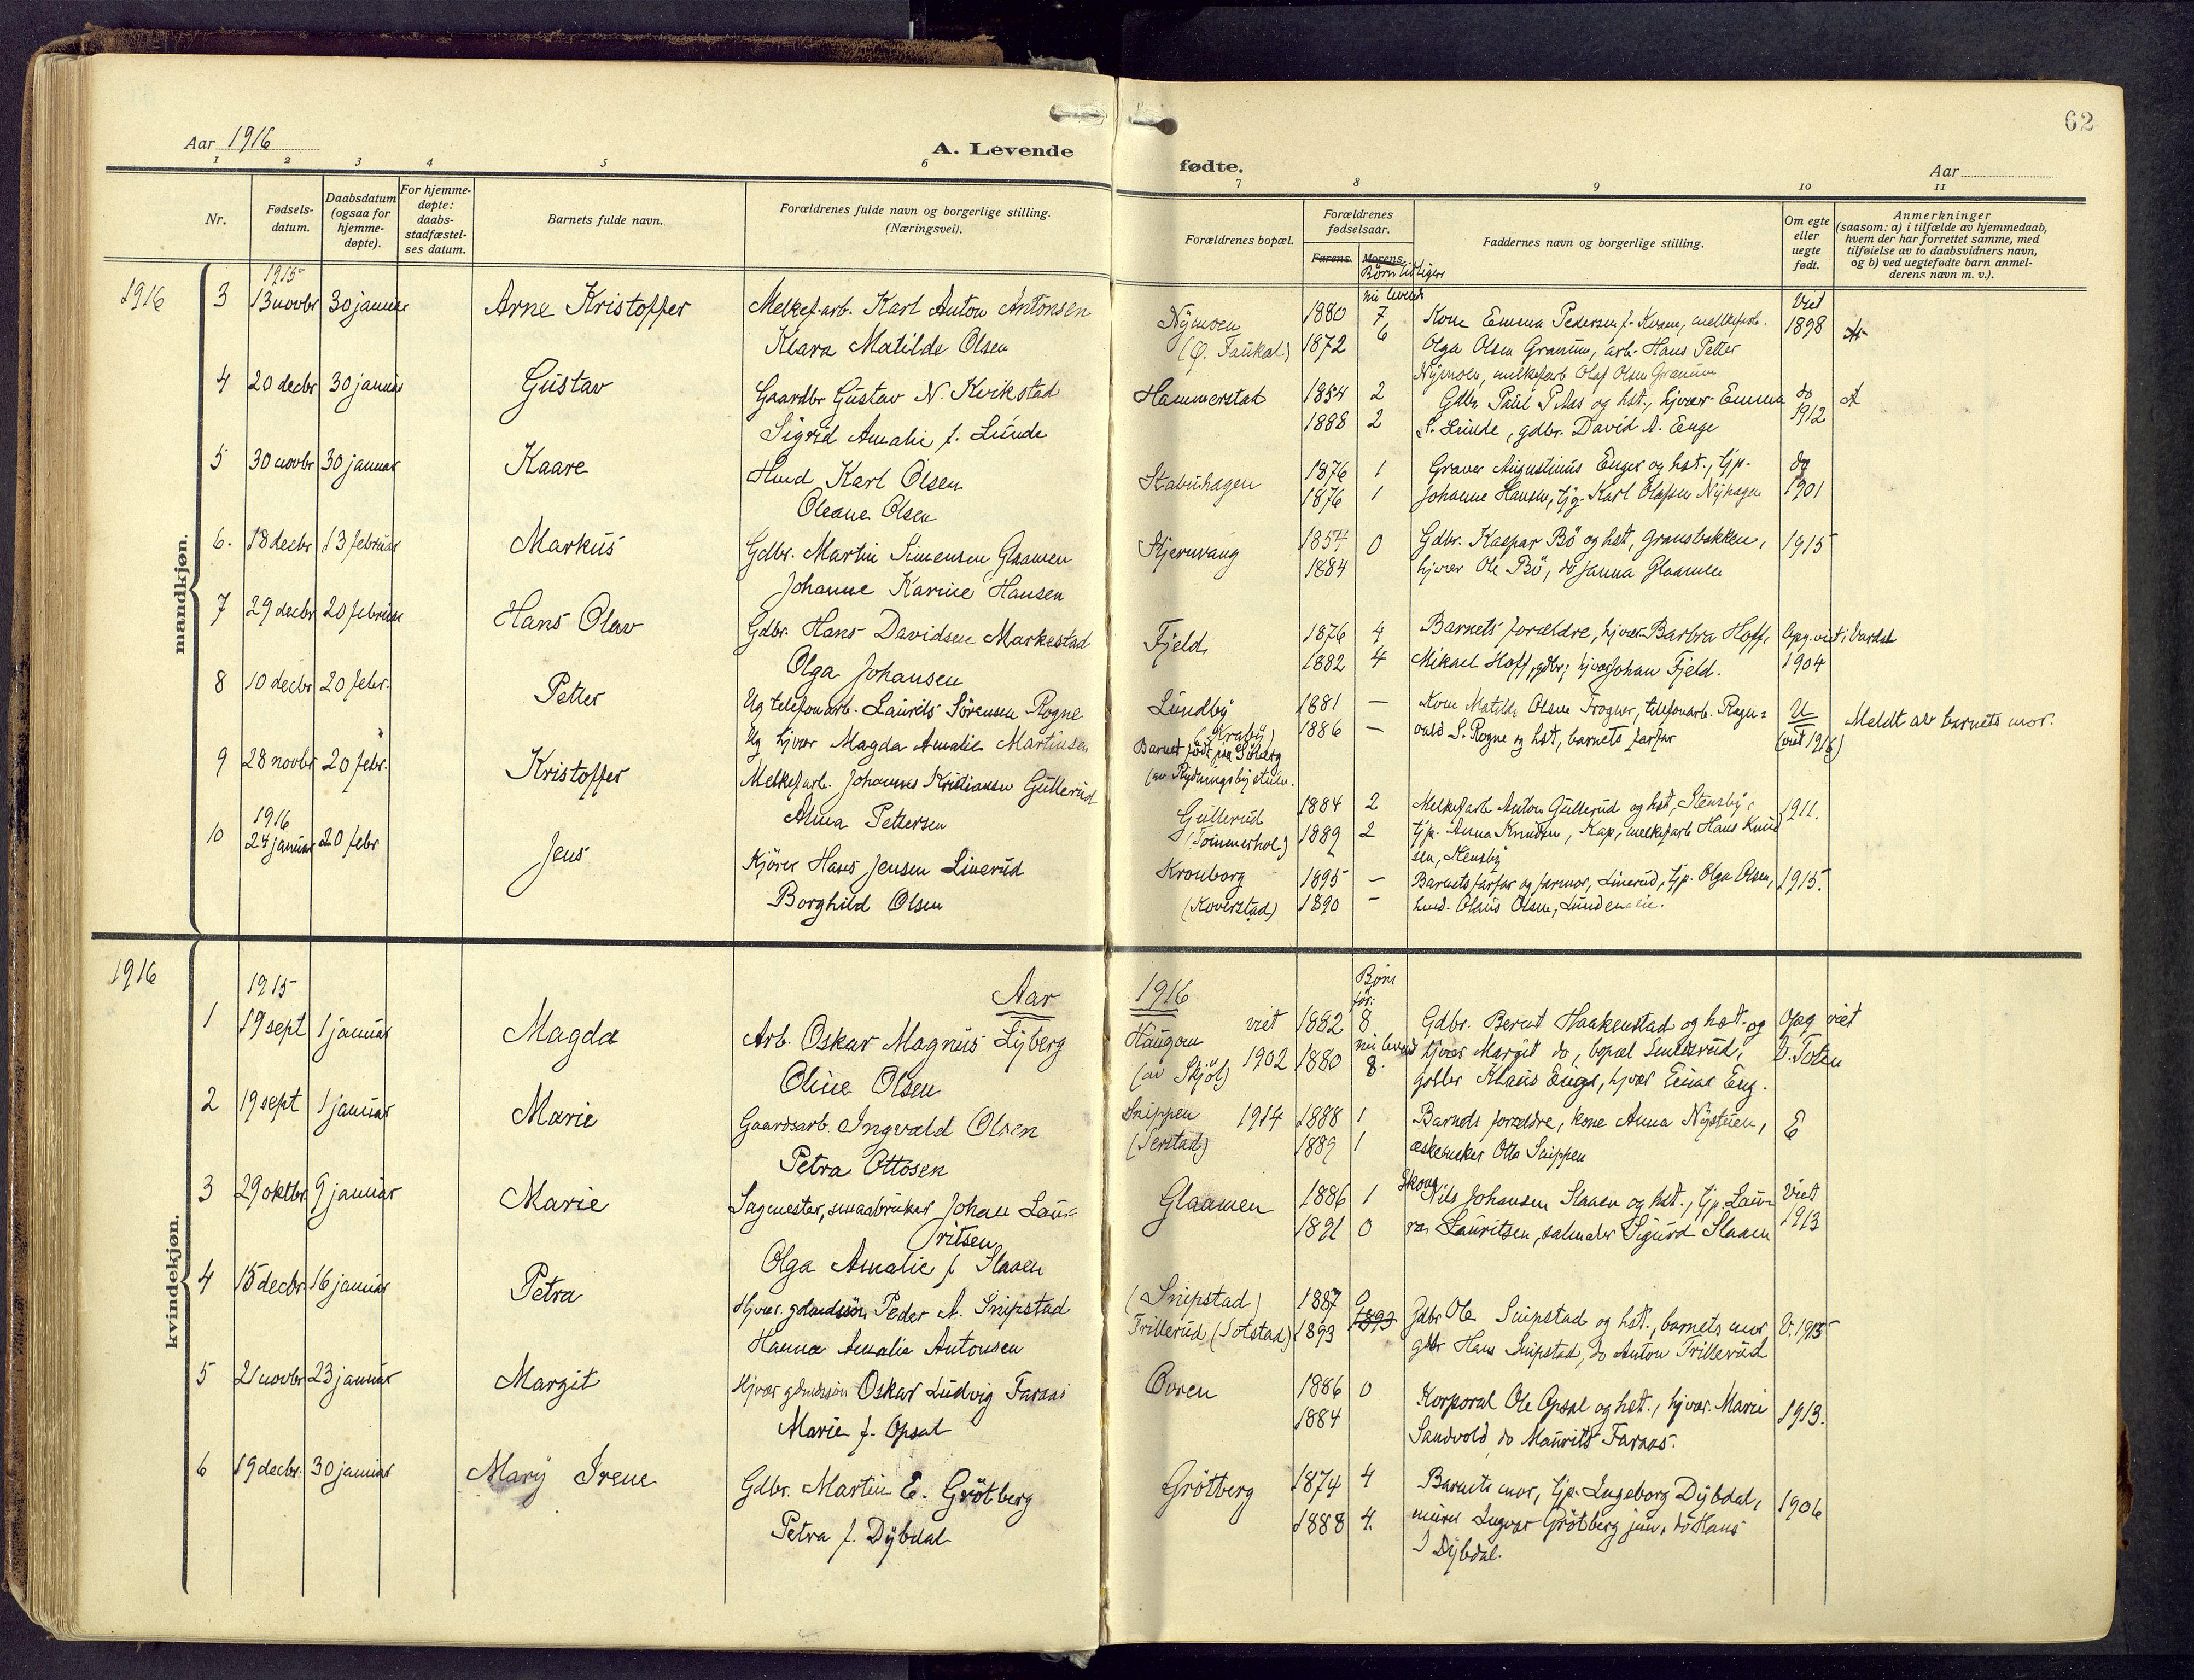 62
Aar 1916
A. Levende
fødte.
Aar
1 2 3 4 5 6 7 8 9 10 11
Nr.
Fødsels-
datum.
Daabsdatum
(ogsaa for
hjemme-
døpte).
For hjemme-
døpte:
daabs-
stadfæstel-
ses datum.
Barnets fulde navn.
Forældrenes fulde navn og borgerlige stilling.
(Næringsvei).
Forældrenes bopæl.
Forældrenes
fødselsaar.
Farens. Morens.
Børn tidligere
nu levend
Faddernes navn og borgerlige stilling.
Om egte
eller
uegte
født.
Anmerkninger
(saasom: a) i tilfælde av hjemmedaab,
hvem der har forrettet samme, med
tilføielse av to daabsvidners navn,
og b) ved uegtefødte barn anmel-
derens navn m. v.).
mandkjøn.
1916
1915
3 13 novbr 30 januar Arne Kristoffer Melkef.arb. Karl Anton Antonsen Nymoen 1880 7 Kone Emma Pedersen f. Kvam, melkefarb. Viet
Klara Matilde Olsen (Ø. Faukal) 1872 6 Olga Olsen Granum, arb. Hans Petter 1898
Nymoen, melkefarb Olaf Olsen Granum
4 20 decbr 30 januar Gustav Gaardbr Gustav N. Kvikstad Hammerstad 1854 2 Gdbr. Paul P. Aas og hst., hjvær. Emma do A
Sigrid Amalie f. Lunde 1888 2 S. Lunde, gdbr. David A. Enge 1912
5 30 novbr 30 januar Kaare Hmd Karl Olsen Stabuhagen 1876 1 Graver Augustinus Enger og hst., tjp. do
Oleane Olsen 1876 1 Johanne Hansen, tjg. Karl Olafsen Nyhagen 1901
6. 18 decbr 13 februar Markus Gdbr. Martin Simensen Glaamen Stjernvang 1854 0 Gdbr. Kaspar Bö og hst, Gransbakken, 1915
Johanne Karine Hansen 1884 hjvær Ole Bö, do Janna Glaamen
7 29 decbr 20 februar Hans Olav Gdbr. Hans Davidsen Markestad Fjeld 1876 4 Barnets forældre, hjvær. Barbra Hoff, Opg. viet i Vardal
Olga Johansen 1882 4 Mikael Hoff, gdbr, hjvær Johan Fjeld. 1904
8 10 decbr 20 febr. Petter Ug telefonarb. Laurits Sörensen Rogne Lundby 1881 — Kone Matilde Olsen Frogner, telefonarb. Ragn= U Meldt av barnets mor.
Ug hjvær Magda Amalie Martinsen (Kraby) 1886 — vald S. Rogne og hst, barnets farfar (viet 1916)
Barnet födt paa Söberg
(av Rydningsbystuen.
9 28 novbr 20 febr. Kristoffer Melkefarb. Johannes Kristiansen Gullerud Gullerud 1884 2 Melkefarb Anton Gullerud og hst, Stensby, 1911.
Alma Pettersen (Tömmerhol) 1889 2 tjp. Anna Knudsen, Kap, melkefarb Hans Knud
sen, Stensby
1916
10 24 januar 20 febr Jens Kjörer Hans Jensen Linerud Kronborg 1895 — Barnets farfar og farmor, Linerud, tjp. Olga Olsen, 1915.
Borghild Olsen (Koverstad) 1890 — hmd. Olaus Olsen,
kvindekjøn.
1916
Aar 1916
Børn
før:
1915
1 19 sept 1 januar Magda Arb. Oskar Magnus Lyberg Haugom viet 1882 8 Gdbr. Bernt Haakenstad og hst. og Opg viet
Oline Olsen (av Skjöl) 1902 1880 nu levend 8. hjvær Margit do, bopæl Smelderud, V. Toten
gdbr Klaus Enge, hjvær Einar Eng.
2 19 sept 1 januar Marie Gaardsarb. Ingvald Olsen Snippen 1914 1888 1 Barnets forældre, kone Anna Nystuen, E
Petra Ottosen (Serstad) 1889 1 æskebusker Otto Snippen
3 29 oktbr 9 januar Marie Sagmester, smaabruker Johan Lau= Glaamen 1886 1 Skoug Nils Johansen Slaaen og hst., tjp. Lau= Viet
ritsen 1891 0 ra Lauritsen, salmaker Sigurd Slaaen 1913
Olga Amalie f Slaaen
4 15 decbr. 16 januar Petra Hjvær. gdmdssön Peder A. Snipstad (Snipstad) 1887 0 Gdbr Ole Snipstad og hst., barnets mor V. 1915
Hanna Amalie Antonsen Trillerud (Sotstad) 1893 1893 gdbr Hans Snipstad, do Anton Trillerud
5 21 novbr 23 januar Margit Hjvær gdmdssön Oskar Ludvig Faraas Ovren 1886 0 Korporal Ole Opsal og hst., hjvær. Marie 1913.
Marie f. Opsal 1884 Sandvold, do Maurits Faraas.
6 19 decbr. 30 januar Mary Irene Gdbr. Martin E. Grötberg Grötberg 1874 4 Barnets mor, tjp. Ingeborg Dybdal, 1906
Petra f. Dybdal 1888 4. murer Ingvar Grötberg jun., do Hans
J Dybdal.